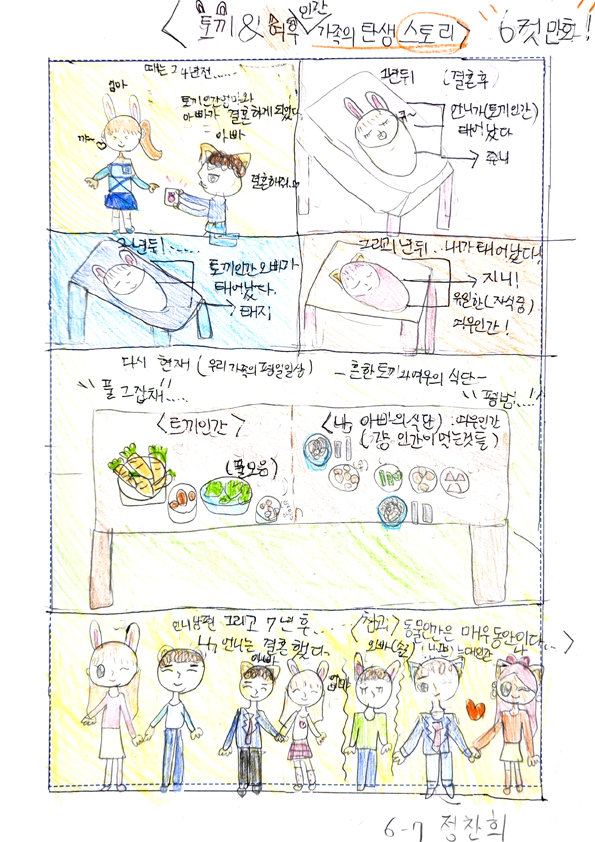 <토끼 & 여우 인간 가족의 탄생 스토리>
6컷 만화!
때는 24년전.....
엄마
토끼인간 엄마와
아빠가 결혼하게 되었다
아빠
꺄~
결혼해줘..
1년뒤 (결혼후)
언니가(토끼인간)
태어났다
쥬니
2년뒤.....
토끼인간 오빠가
태어났다.
태지
그리고 1년뒤..내가 태어났다!
지니!
유일한(자식중)
여우인간!
다시 현재 (우리 가족의 평일일상)
-흔한 토끼와여우의 식단-
풀 그잡채!!...
평범...!!
<토끼인간>
(풀모음)
<나, 아빠의 식단> :여우인간
(걍 인간이 먹는것들)
언니남편 그리고 7년 후....
나, 언니는 결혼했다.
<참고> 동물인간은 매우 동안이다...>
아빠
엄마
오빠(솔로)
나
6-7 정찬희